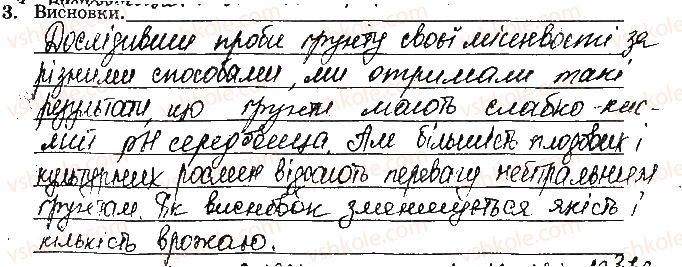 3. Висновки.
Дослідивши проби ґрунту своєї місцевості за
різними способами, ми отримали такі
результати, що ґрунти мають слабко-кис-
лий pH середовища. Але більшість плодових і
культурних рослин віддають перевагу нейтральним
ґрунтам. Як висновок зменшується якість і
кількість врожаю.